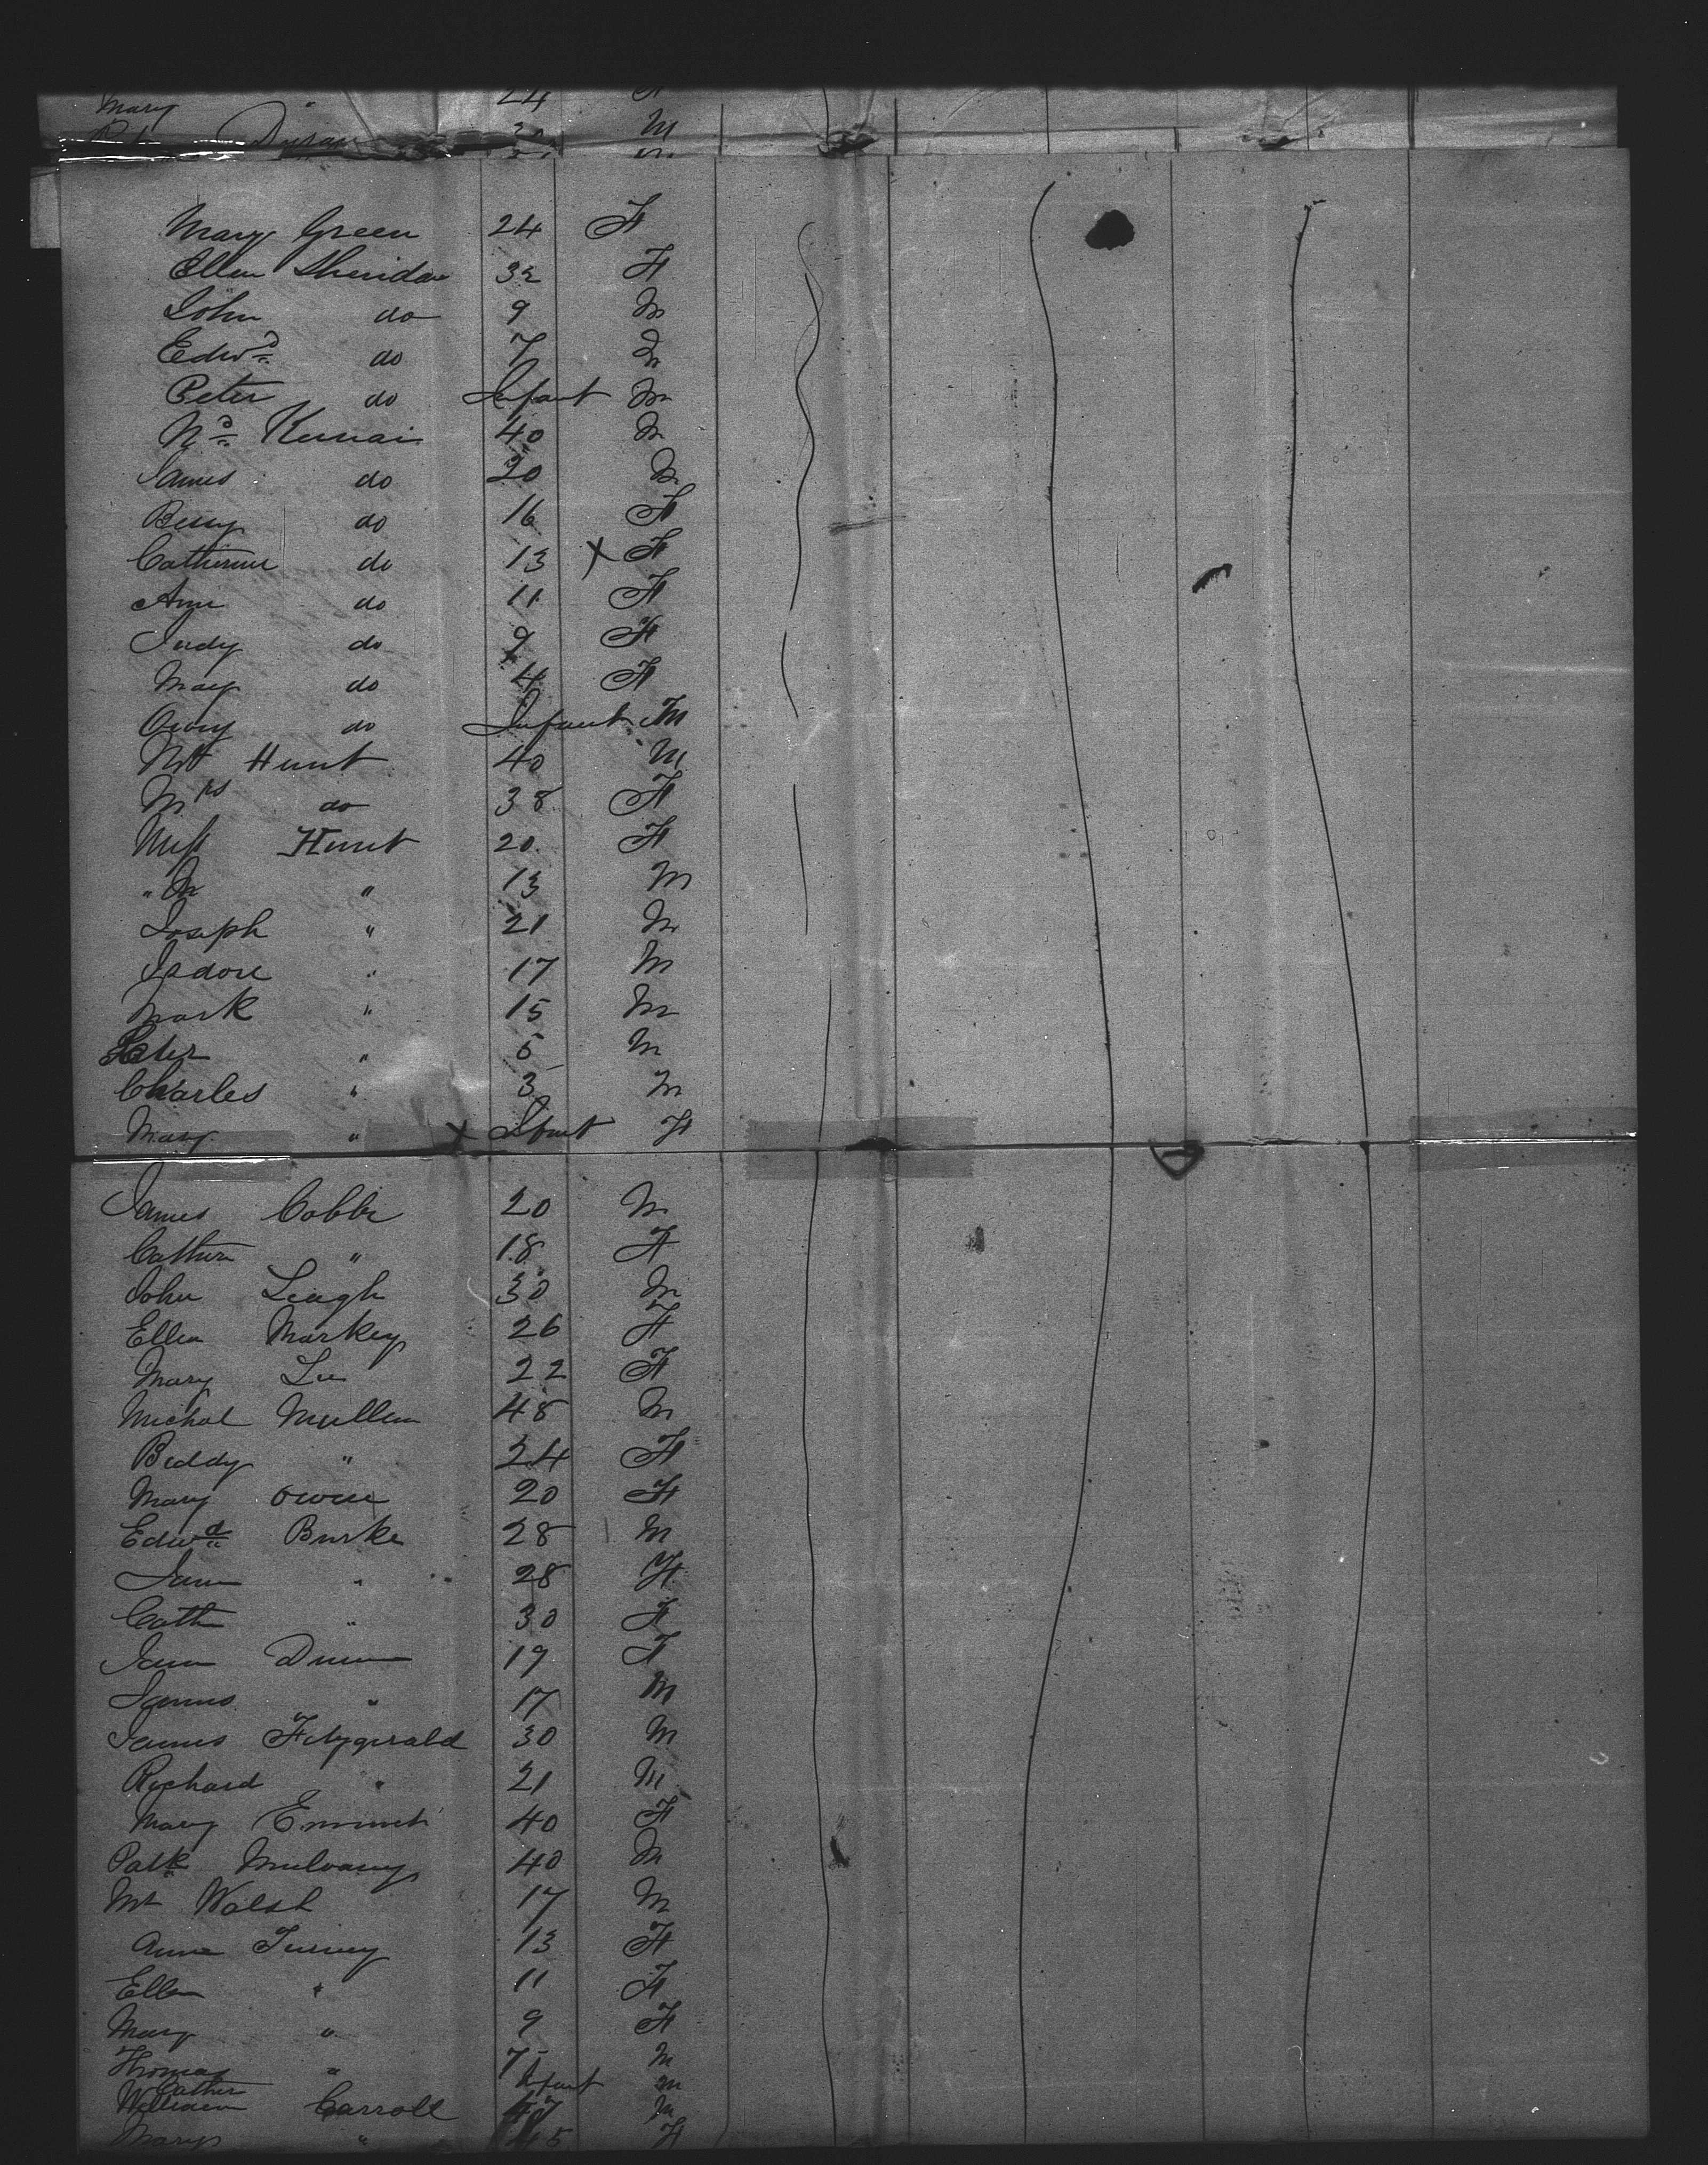 Mary " 24 F
Dugan M
Mary Green 24 F
Ellen Sheridan 32 F
John do 9 M
Edwd do 7 M
Peter do Infant M
Nd Kernai 40 M
James do 20 M
Bessy do 16 F
Catherine do 13 x F
Ann do 11 F
Judy do 9 F
Mary do 4 F
do Infant M
Mtt Hunt 40 M
Mrs do 38 F
Miss Hunt 20 F
" M " 13 M
Joseph " 21 M
Isdore " 17 M
Mark " 15 M
Peter " 5 M
Charles " 3 M
Mary " x Infant F
James Cobbe 20 M
Cathern " 18 F
John Leagh 30 M
Ellen Markey 26 F
Mary Lee 22 F
Michal Mullen 48 M
Biddy " 24 F
Mary Owen 20 F
Edwd Burke 28 M
Jane " 28 F
Cath " 30 F
Jane Dunn 19 F
James " 17 M
James Fitzgerald 30 M
Richard " 21 M
Mary Emmet 40 F
Patk Mulvany 40 M
Mt Walsh 17 M
Anne Turney 13 F
Ellen " 11 F
Mary " 9 F
Thomas " 7 M
Cather Infant M
William Carroll 47 M
Mary " 45 F